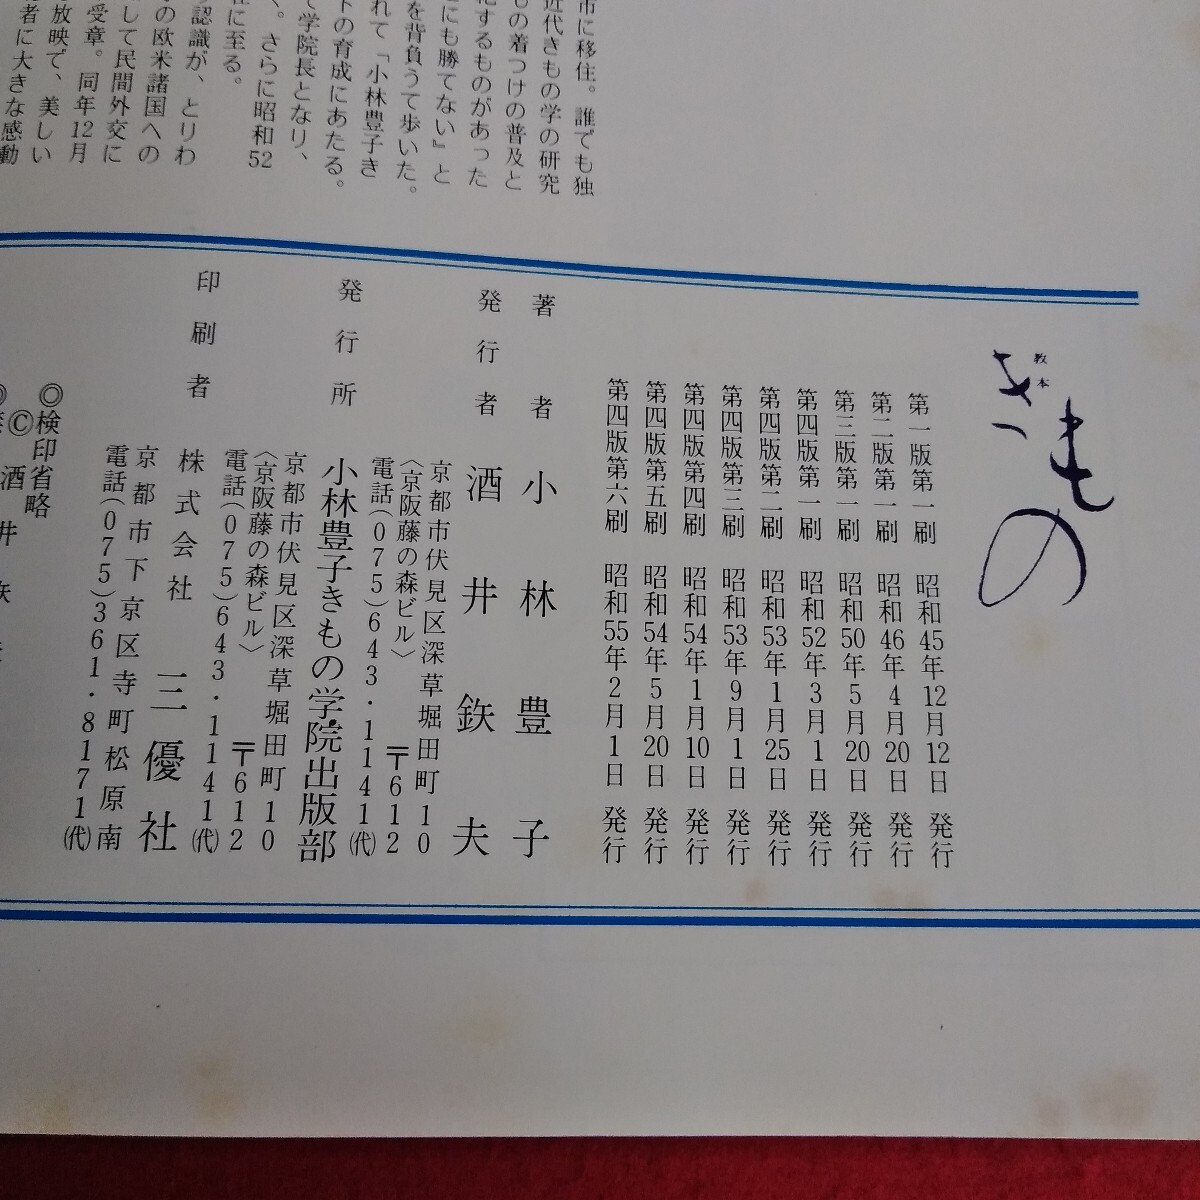 市に移住。誰でも独
近代きもの学の研究
もの着つけの普及と
化するものがあった
にも勝てない』と
を背負うて歩いた。
れて「小林豊子き
下の育成にあたる。
て学院長となり、
く。さらに昭和52
在に至る。
認識が、とりわ
の欧米諸国への
して民間外交に
受章。同年12月
放映で、美しい
者に大きな感動
教本
きもの
第一版第一刷 昭和45年12月12日 発行
第二版第一刷 昭和46年4月20日 発行
第三版第一刷 昭和50年5月20日 発行
第四版第一刷 昭和52年3月1日 発行
第四版第二刷 昭和53年1月25日 発行
第四版第三刷 昭和53年9月1日 発行
第四版第四刷 昭和54年1月10日 発行
第四版第五刷 昭和54年5月20日 発行
第四版第六刷 昭和55年2月1日 発行
著者 小林豊子
発行者 酒井鉄夫
京都市伏見区深草堀田町10
〈京阪藤の森ビル〉 〒612
電話(075)643・1141(代)
発行所 小林豊子きもの学院出版部
京都市伏見区深草堀田町10
〈京阪藤の森ビル〉 〒612
電話(075)643・1141(代)
印刷者 株式会社 三優社
京都市下京区寺町松原南
電話(075)361・8171(代)
◎検印省略
Ⓒ酒井鉄